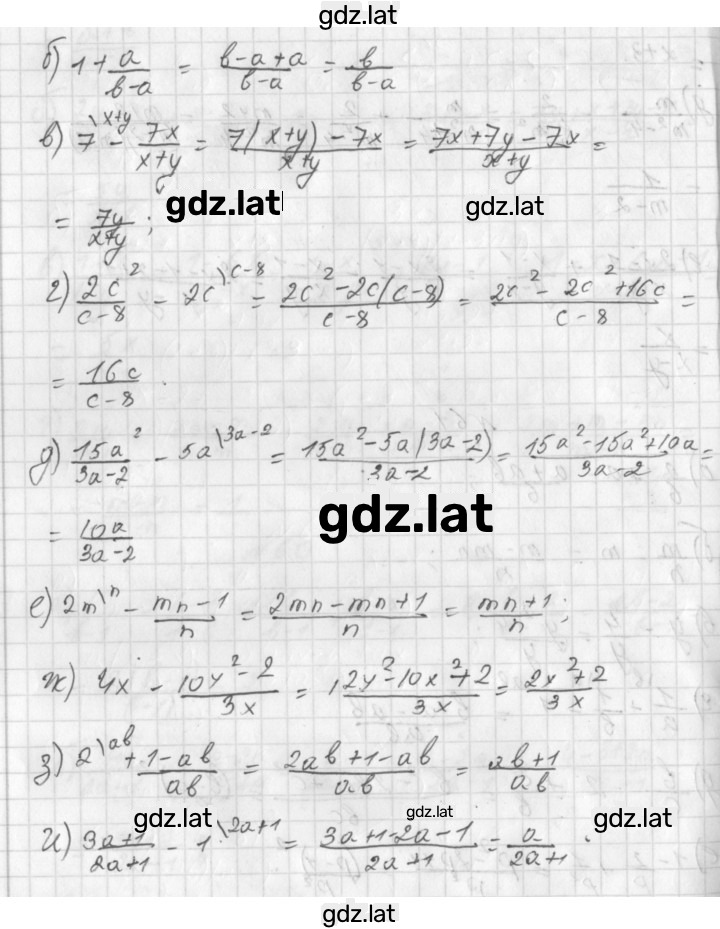 gdz.lat
б) 1 + a/(b-a) = (b-a+a)/(b-a) = b/(b-a)
в) 7\x+y - 7x/(x+y) = (7(x+y) - 7x)/(x+y) = (7x+7y-7x)/(x+y) =
gdz.lat gdz.lat
= 7y/(x+y);
г) 2c²/(c-8) - 2c\c-8 = (2c²-2c(c-8))/(c-8) = (2c²-2c²+16c)/(c-8) =
= 16c/(c-8)
д) 15a²/(3a-2) - 5a\3a-2 = (15a²-5a(3a-2))/(3a-2) = (15a²-15a²+10a)/(3a-2) =
gdz.lat
= 10a/(3a-2)
е) 2m\n - (mn-1)/n = (2mn-mn+1)/n = (mn+1)/n;
ж) 4x - (10y²-2)/3x = (12y²-10x²+2)/3x = (2x²+2)/3x
з) 2\ab + (1-ab)/ab = (2ab+1-ab)/ab = (ab+1)/ab
gdz.lat gdz.lat gdz.lat
и) (3a+1)/(2a+1) - 1\2a+1 = (3a+1-2a-1)/(2a+1) = a/(2a+1).
gdz.lat